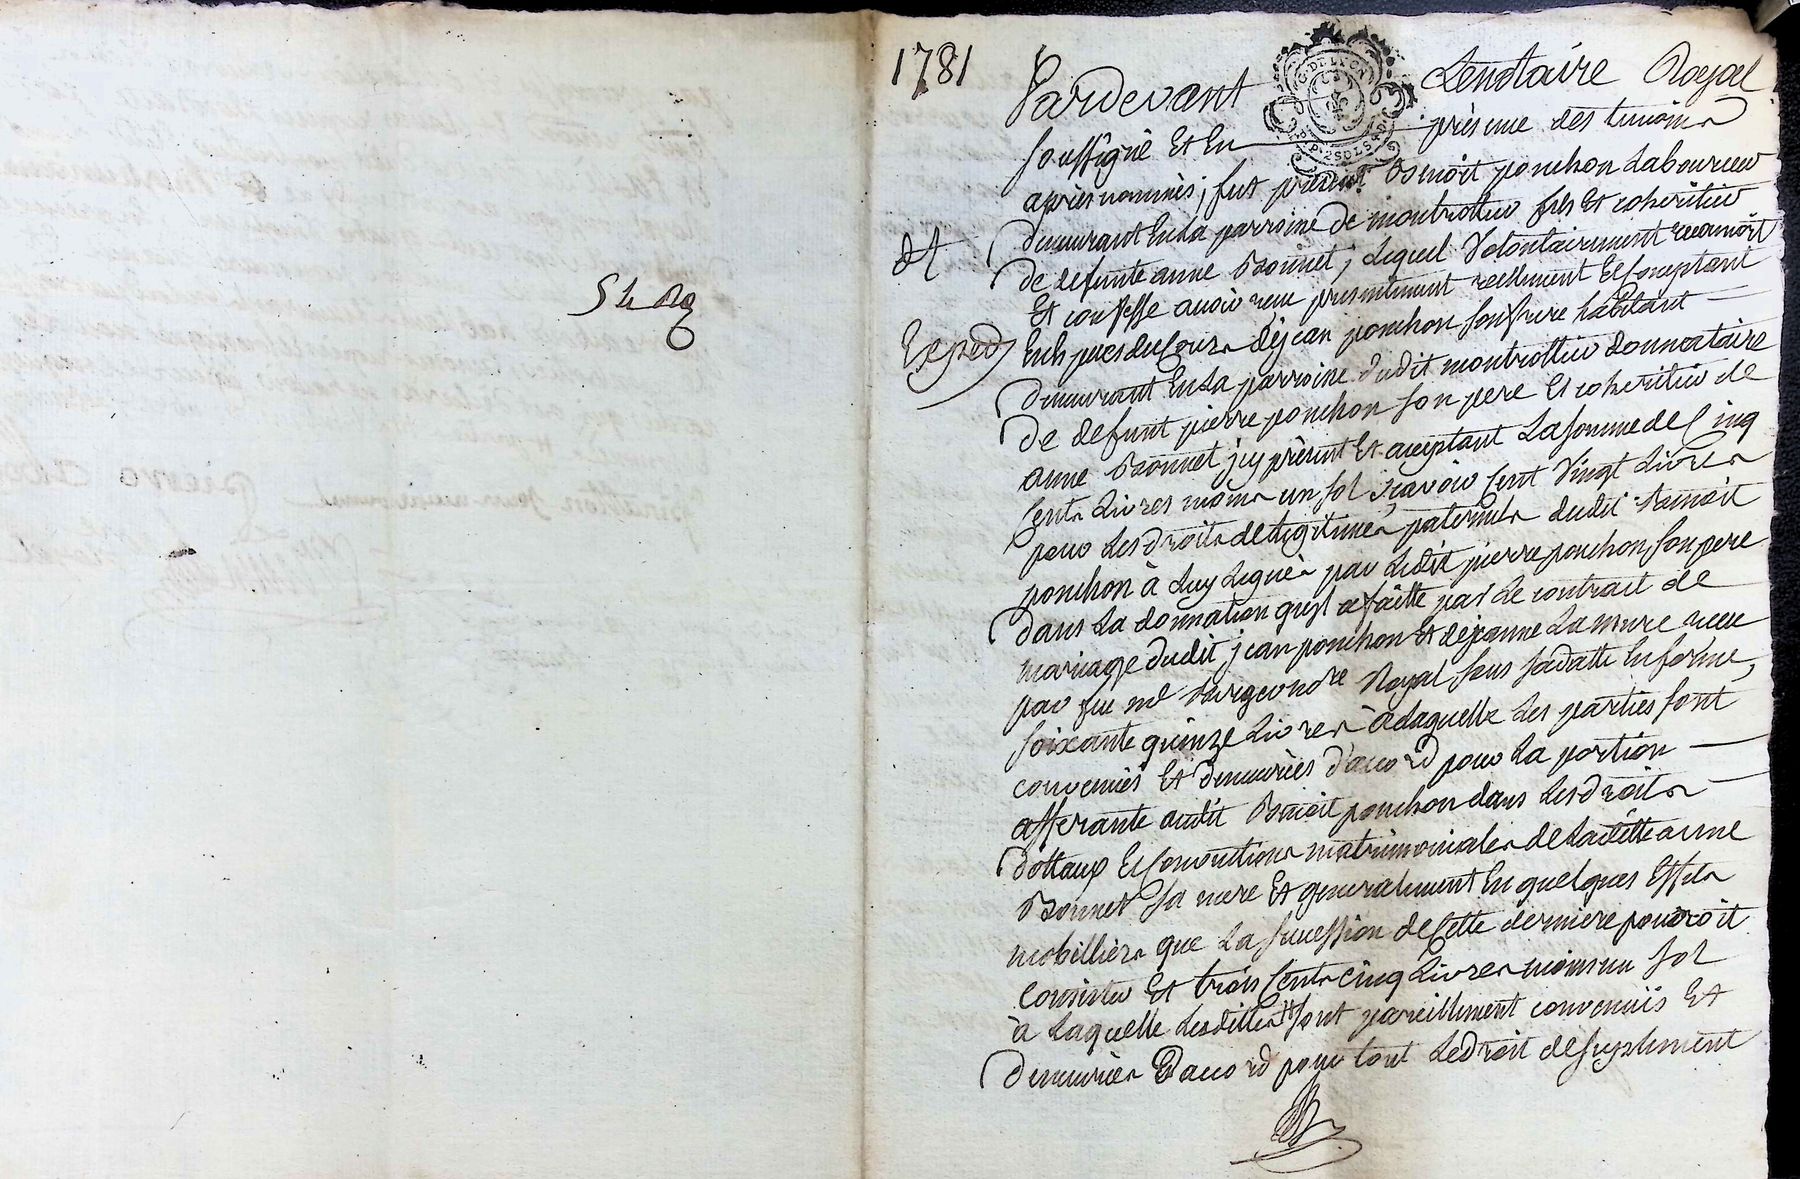 1781
Pardevant Lenotaire Royal
soussigné Et En présence des temoins
après nommés; fut présent Benoit ponchon Laboureur
demeurant En La parroisse de montrottier fils Et coheritier
de defunte anne Bonnet, Lequel Volontairement reconnoit
Et confesse avoir receu presentement reellement Et Comptant
En Especes du Cours de jean ponchon son frere habitant
demeurant En La parroisse dudit montrottier donnataire
de defunt pierre ponchon son pere Et coheritier de
anne Bonnet, icy présent Et acceptant La somme de Cinq
Cents Livres moins un sol sçavoir Cent Vingt Livres
pour Les droits de Legitimes paternels dudit Benoit
ponchon à Luy Legués par Ledit pierre ponchon, son pere
dans La donnation qu'il a faitte par Le contrait de
mariage dudit jean ponchon Et de jeanne La mure receu
par feu me nore Royal sous sa datte En forme,
soixante quinze Livres à Laquelle Les parties sont
convenües Et demeurées d'accord pour La portion
afferante audit Benoit ponchon dans Les droits
dottaux Et Conventions matrimoniales de Laditte anne
Bonnet sa mere Et generalement En quelques Effets
mobilliers que La succession de Cette derniere pourroit
Consister Et trois Cents cinq Livres moins un sol
à Laquelle Lesdittes sont pareillement convenües Et
demeurées D'accord pour tout Le droit de suplement